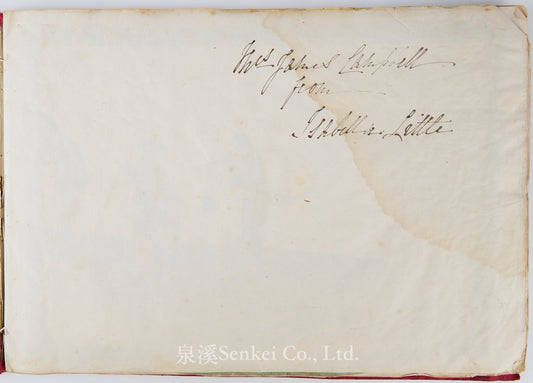 Mrs James Campbell
from
Isabella Little
泉溪Senkei Co., Ltd.